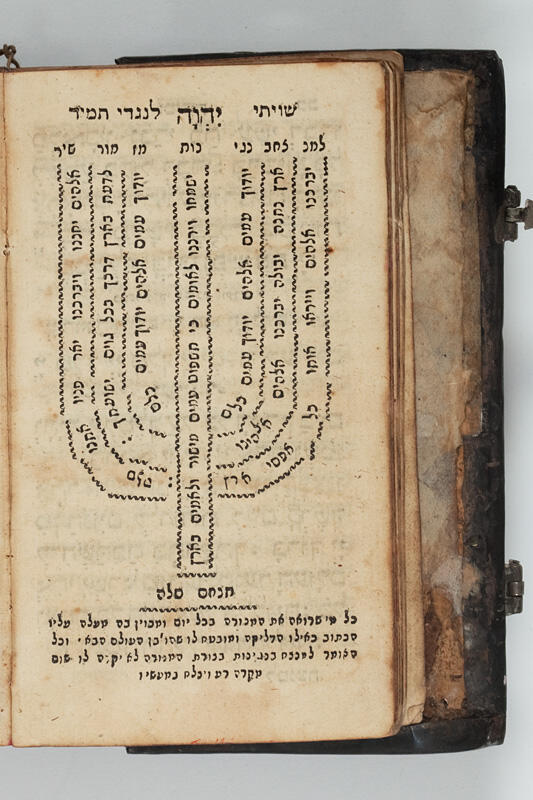 שויתי יְהֹוָה לנגדי תמיד
למנ צחב נגי נות מז מור שיר
יברכנו אלהים וייראו אותו כל אפסי ארץ
ארץ נתנה יבולה יברכנו אלהים אלהינו
יודוך עמים אלהים יודוך עמים כלם
ישמחו וירננו לאומים כי תשפוט עמים מישור ולאמים בארץ
יודוך עמים אלהים יודוך עמים כלם
לדעת בארץ דרכך בכל גוים ישועתך
אלהים יחננו ויברכנו יאר פניו אתנו סלה
תנחם סלה
כל מי שרואה את המנורה בכל יום ומכוין בה מעלה עליו
הכתוב כאילו הדליקה ומובטח לו שהו' בן העולם הבא' וכל
האומר למנצח בנגינות בצורת המנורה לא יקרה לו שום
מקרה רע ויצלח במעשיו